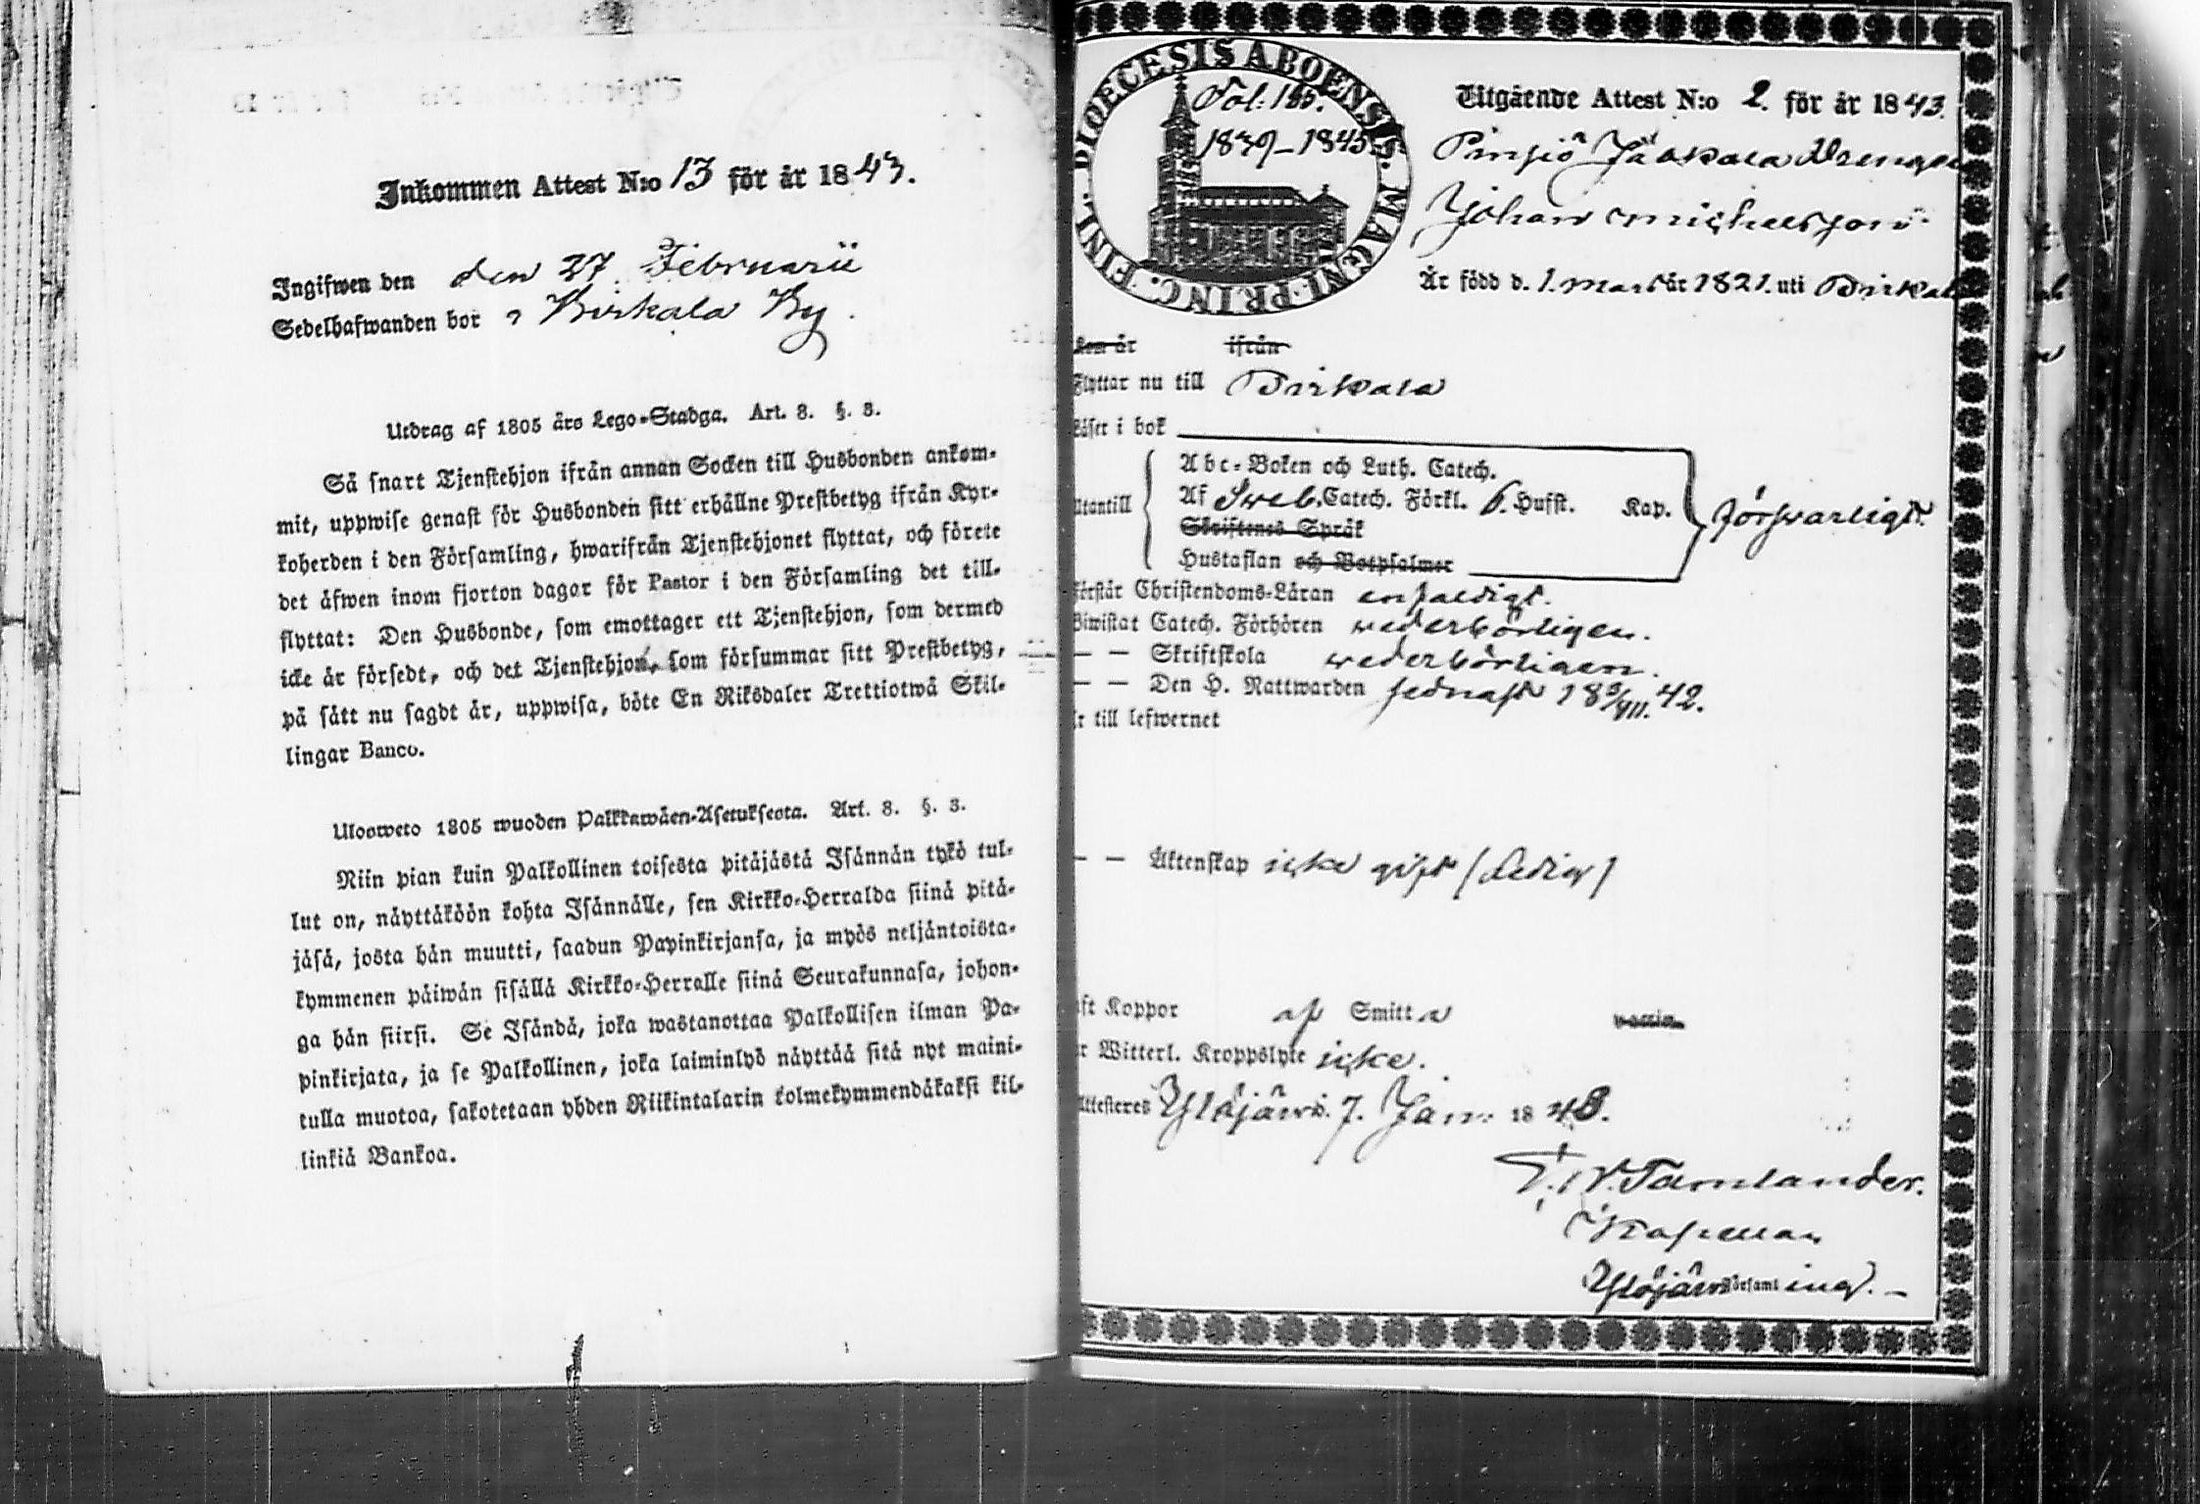 Inkommen Attest N:o 13 för år 1843.
Ingifwen den den 27 Februarii
Sedelhafwanden bor i Birkala By.
Utdrag af 1805 års Lego-Stadga. Art. 3. §. 3.
Så snart Tjenstehjon ifrån annan Socken till Husbonden ankom-
mit, uppwise genast för Husbonden sitt erhållne Prestbetyg ifrån Kyr-
koherden i den Församling, hwarifrån Tjenstehjonet flyttat, och förete
det äfwen inom fjorton dagar för Pastor i den Församling det till-
flyttat: Den Husbonde, som emottager ett Tjenstehjon, som dermed
icke är försedt, och det Tjenstehjon, som försummar sitt Prestbetyg,
på sätt nu sagdt är, uppwisa, böte En Riksdaler Trettiotwå Skil-
lingar Banco.
Ulosweto 1805 wuoden Palkkawäen-Asetuksesta. Art. 3. §. 3.
Niin pian kuin Palkollinen toisesta pitäjästä Isännän tykö tul-
lut on, näyttäköön kohta Isännälle, sen Kirkko-Herralda siinä pitä-
jäsä, josta hän muutti, saadun Papinkirjansa, ja myös neljäntoista-
kymmenen päiwän sisällä Kirkko-Herralle siinä Seurakunnasa, johon-
ga hän siirsi. Se Isändä, joka wastanottaa Palkollisen ilman Pa-
pinkirjata, ja se Palkollinen, joka laiminlyö näyttää sitä nyt maini-
tulla muotoa, sakotetaan yhden Riikintalarin kolmekymmendäkaksi kil-
linkiä Bankoa.
DIOECESIS ABOENSIS. MAGNI PRINC. FINL.
Fol: 185.
1839–1845
Utgående Attest N:o 2. för år 1843.
Pinsiö Jaakala Drengen
Johan Michelsson
Är född d. 1. Mars år 1821. uti Birkala
Kom år ifrån
Flyttar nu till Birkala
Läser i bok
Utantill
Abc-Boken och Luth. Catech.
Af Sweb. Catech. Förkl. 6. Hufst. Kap. försvarligt.
Skriftenes Språk
Hustaflan och Botpsalmer
Förstår Christendoms-Läran enfaldigt.
Biwistat Catech. Förhören wederbörligen.
— — Skriftskola wederbörligen.
— — Den H. Nattwarden sednast 42.
Är till lefwernet
— — Äktenskap icke gift (Ledig)
Haft Koppor af Smitta vaccin.
Är Witterl. Kroppslyte icke.
Attesteres Ylöjärvi. 7. Jan: 1843.
Tamlander.
Kapellan
Ylöjärvi Församling.